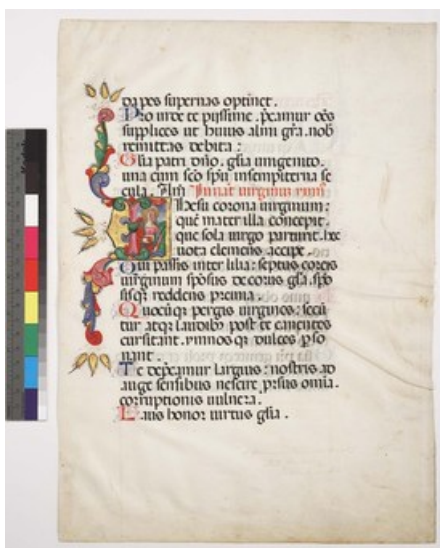 da pes supernas optinet.
Pro inde te pijssime. p̄camur oēs
supplices ut huius almi gr̄a. nob̄
remittas debita:
Gl̄ia patri dn̄o. gl̄ia unigenito.
una cum sc̄o sp̄u insempiterna se
cula. Am̄
Ihesu corona uirginum:
quē mater illa concepit.
que sola uirgo parturit. hec
uota clemens accipe.
Qui pascis inter lilia: septus coreis
uirginum sponsus decorus gl̄a. spō
sisq; reddens premia.
Quocūq; pergis uirgines: secū
tur atq; laudibus post te canentes
cursitant. ymnos q; dulces pso
nant.
Te dep̄camur largius: nostris ad
auge sensibus nescire p̄sus omīa.
corruptionis uulnera.
Laus honor uirtus gl̄ia.